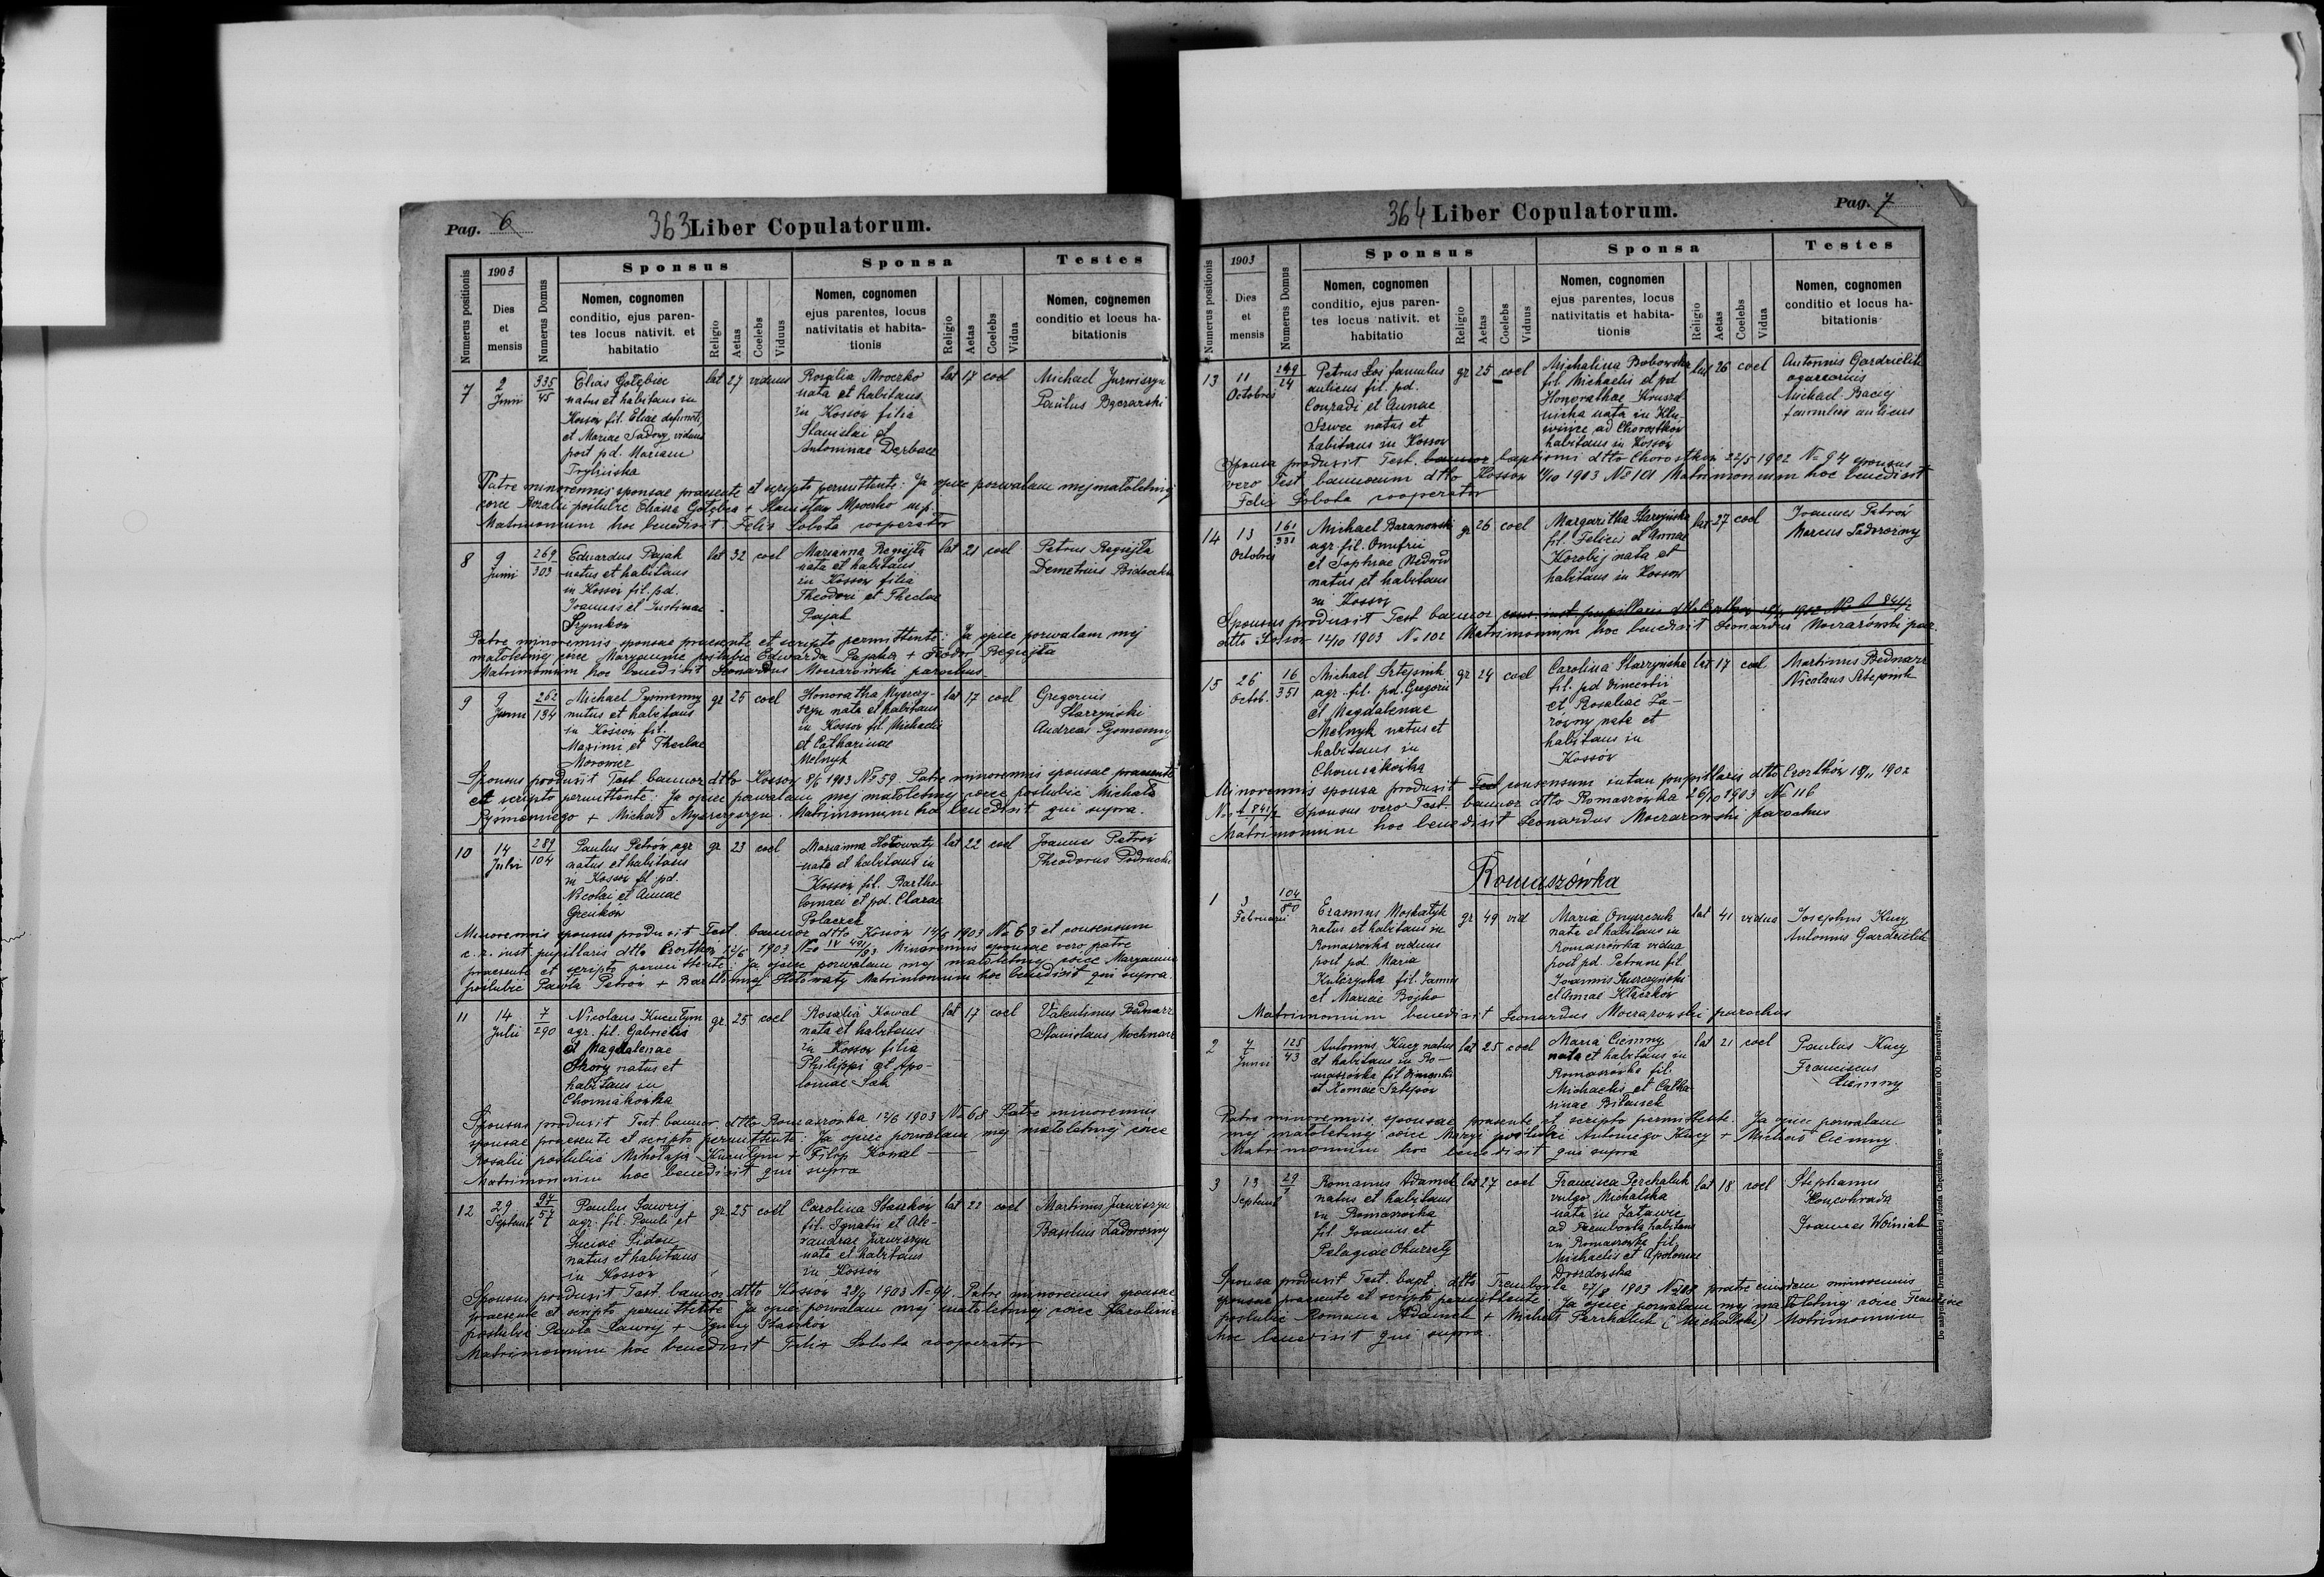 Pag. 6
363 Liber Copulatorum.
Numerus positionis
1903
Dies
et
mensis
Numerus Domus
Sponsus
Nomen, cognomen
conditio, ejus paren-
tes locus nativit. et
habitatio
Religio
Aetas
Coelebs
Viduus
Sponsa
Nomen, cognomen
ejus parentes, locus
nativitatis et habita-
tionis
Religio
Aetas
Coelebs
Vidua
Testes
Nomen, cognemen
conditio et locus ha-
bitationis
7
2
Junii
335
45
Elias Gołębiec
natus et habitans in
Kossów fil. Eliae defuncti
et Mariae Sadowy viduus
post pd. Mariam
Trylińska
lat 27 viduus
Rosalia Mroczko
nata et habitans
in Kossów filia
Stanislai et
Antoninae Derbacz
lat 17 coel
Michael Jurwiszyn
Paulus
Patre minorennis sponsae praesente et scripto permittente: Ja ojciec pozwalam mej małoletniej
córce Rozalii poślubić Eliasza Gołębca + Stanisław Mroczko mp.
Matrimonium hoc benedixit Felix Sobota cooperator
8
9
Junii
269
303
Eduardus Pająk
natus et habitans
in Kossów fil. pd.
Joannis et Justinae
Szymków
lat 32 coel
Marianna Regiejta
nata et habitans
in Kossów filia
Theodori et Theclae
Pająk
lat 21 coel
Petrus Regiejta
Demetrius
Patre minorennis sponsae praesente et scripto permittente: Ja ojciec pozwalam mej
małoletniej córce Maryannie poślubić Edwarda Pająka + Fedor Regiejta
Matrimonium hoc benedixit Leonardus Moczarowski parochus
9
9
Junii
262
134
Michael Pysmenny
natus et habitans
in Kossów fil.
Maximi et Theclae
Morowiec
gr 25 coel
Honoratha
nata et habitans
in Kossów fil. Michaelis
et Catharinae
Melnyk
lat 17 coel
Gregorius
Starzyński
Andreas Pysmenny
Sponsus produxit Test. bannor. dtto Kossów 8/6 1903 No 59. Patre minorennis sponsae praesente
et scripto permittente: Ja ojciec pozwalam mej małoletniej córce poślubić Michała
Pysmennego + Michał . Matrimonium hoc benedixit qui supra.
10
14
Julii
289
104
Paulus Petrów agr
natus et habitans
in Kossów fil. pd.
Nicolai et Annae
Greńków
gr 23 coel
Marianna Hołowaty
nata et habitans in
Kossów fil. Bartho-
lomaei et pd. Clarae
Polaczek
lat 22 coel
Joannes Petrów
Theodorus
Minorennis sponsus produxit Test. bannor dtto Kossów 14/6 1903 No 63 et consensum
c. r. inst. pupillaris dtto Czortków 12/6 1903 No IV Minorennis sponsae vero patre
praesente et scripto permittente: Ja ojciec pozwalam mej małoletniej córce Maryannie
poślubić Pawła Petrów + Bartłomiej Hołowaty Matrimonium hoc benedixit qui supra
11
14
Julii
7
290
Nicolaus Kucułym
agr. fil. Gabrielis
et Magdalenae
Skory natus et
habitans in
Chomiakówka
gr. 25 coel
Rosalia Kowal
nata et habitans
in Kossów filia
Philippi et Apo-
loniae Sak
lat 17 coel
Valentinus Bednarz
Stanislaus Mochnacz
Sponsus produxit Test. bannor. dtto Romaszówka 12/6 1903 No 68 Patre minorennis
sponsae praesente et scripto permittente: Ja ojciec pozwalam mej małoletniej córce
Rosalii poślubić Mikołaja Kucułym + Filip Kowal
Matrimonium hoc benedixit qui supra
12
29
Septemb
97
57
Paulus Ławryj
agr. fil. Pauli et
Luciae Sidon
natus et habitans
in Kossów
gr. 25 coel
Carolina Staszków
fil. Ignatii et Ale-
xandrae Jurwiszyn
nata et habitans
in Kossów
lat 22 coel
Martinus Jurwiszyn
Basilius Zadorożny
Sponsus produxit Test. bannor. dtto Kossów 28/9 1903 No 94. Patre minorennis sponsae
praesente et scripto permittente Ja ojciec pozwalam mej małoletniej córce Karolinie
poślubić Pawła Ławryj + Ignacy Staszków
Matrimonium hoc benedixit Felix Sobota cooperator
364 Liber Copulatorum.
Pag. 7
Numerus positionis
1903
Dies
et
mensis
Numerus Domus
Sponsus
Nomen, cognomen
conditio, ejus paren-
tes locus nativit. et
habitatio
Religio
Aetas
Coelebs
Viduus
Sponsa
Nomen, cognomen
ejus parentes, locus
nativitatis et habita-
tionis
Religio
Aetas
Coelebs
Vidua
Testes
Nomen, cognomen
conditio et locus ha-
bitationis
13
11
Octobris
249
24
Petrus Łoś famulus
aulicus fil. pd.
Conradi et Annae
Szwec natus et
habitans in Kossów
gr 25 coel
Michalina Bobowska
fil. Michaelis et pd.
Honorathae
nata in Klu-
wińce ad Chorostków
habitans in Kossów
lat 26 coel
Antonius Gardzielik
Michael Baciej
famulus aulicus
Sponsa produxit Test. bannor baptismi dtto Chorostków 22/5 1902 No 94 sponsus
vero Test bannorum dtto Kossów 11/10 1903 No 101 Matrimonium hoc benedixit
Felix Sobota cooperator
14
13
Octobris
161
331
Michael Baranowski
agr. fil. Onufrii
et Sophiae Niedzwid
natus et habitans
in Kossów
gr 26 coel
Margaritha Starzyńska
fil. Felicis et Annae
Korobij nata et
habitans in Kossów
lat 27 coel
Joannes Petrów
Marcus Zadorożny
Sponsus produxit Test bannor cons. inst. pupillaris dtto Czortków 1902 No A 841/2
dtto Kossów 12/10 1903 No 102 Matrimonium hoc benedixit Leonardus Moczarowski par.
15
26
Octob.
16
351
Michael Sztejnik
agr. fil. pd. Gregorii
et Magdalenae
Melnyk natus et
habitans in
Chomiakówka
gr 24 coel
Carolina Starzyńska
fil. pd Vincentii
et Rosaliae Za-
równy nata et
habitans in
Kossów
lat 17 coel
Martinus Bednarz
Nicolaus Sztejnik
Minorennis sponsa produxit Test consensum instan pupillaris dtto Czortków 18/11 1902
No A 841/2 Sponsus vero Test. bannor dtto Romaszówka 26/10 1903 No 116
Matrimonium hoc benedixit Leonardus Moczarowski parochus
Romaszówka
1
3
Februarii
104
80
Erasmus Moskalyk
natus et habitans in
Romaszówka viduus
post pd. Maria
Kulczycka fil. Joannis
et Mariae Bojko
gr 49 vid
Maria Onyszczuk
nata et habitans in
Romaszówka vidua
post pd. Petrum fil.
Joannis
et Annae Klaczków
lat 41 vidua
Josephus Kucy
Antonius Gardzielik
Matrimonium benedixit Leonardus Moczarowski parochus
2
7
Junii
125
43
Antonius Kucy natus
et habitans in Ro-
maszówka fil Dimentii
et Xeniae Sztepów
lat 25 coel
Maria Ciemny
nata et habitans in
Romaszówka fil.
Michaelis et Catha-
rinae Biłausek
lat 21 coel
Paulus Kucy
Franciscus
Ciemny
Patre minorennis sponsae praesente et scripto permittente. Ja ojciec pozwalam
mej małoletniej córce Maryi poślubić Antoniego Kucy + Michał Ciemny
Matrimonium hoc benedixit qui supra
3
13
Septemb
29
1
Romanus Adamek
natus et habitans
in Romaszówka
fil. Joannis et
Pelagiae Okurzały
lat 27 coel
Francisca Perchaluk
vulgo Michalska
nata in Załawie
ad Trembowla habitans
in Romaszówka fil.
Michaelis et Apoloniae
Drozdowska
lat 18 coel
Stephanus
Joannes Woźniak
Sponsa produxit Test. bapt. dtto Trembowla 27/8 1903 No 288 patre eiusdem minorennis
sponsae praesente et scripto permittente: Ja ojciec pozwalam mej małoletniej córce Francisce
poślubić Romana Adamek + Michał Perchaluk (Michalski) Matrimonium
hoc benedixit qui supra.
Do nabycia w Drukarni Katolickiej Józefa Chęcińskiego — w zabudowaniu OO. Bernardynów.